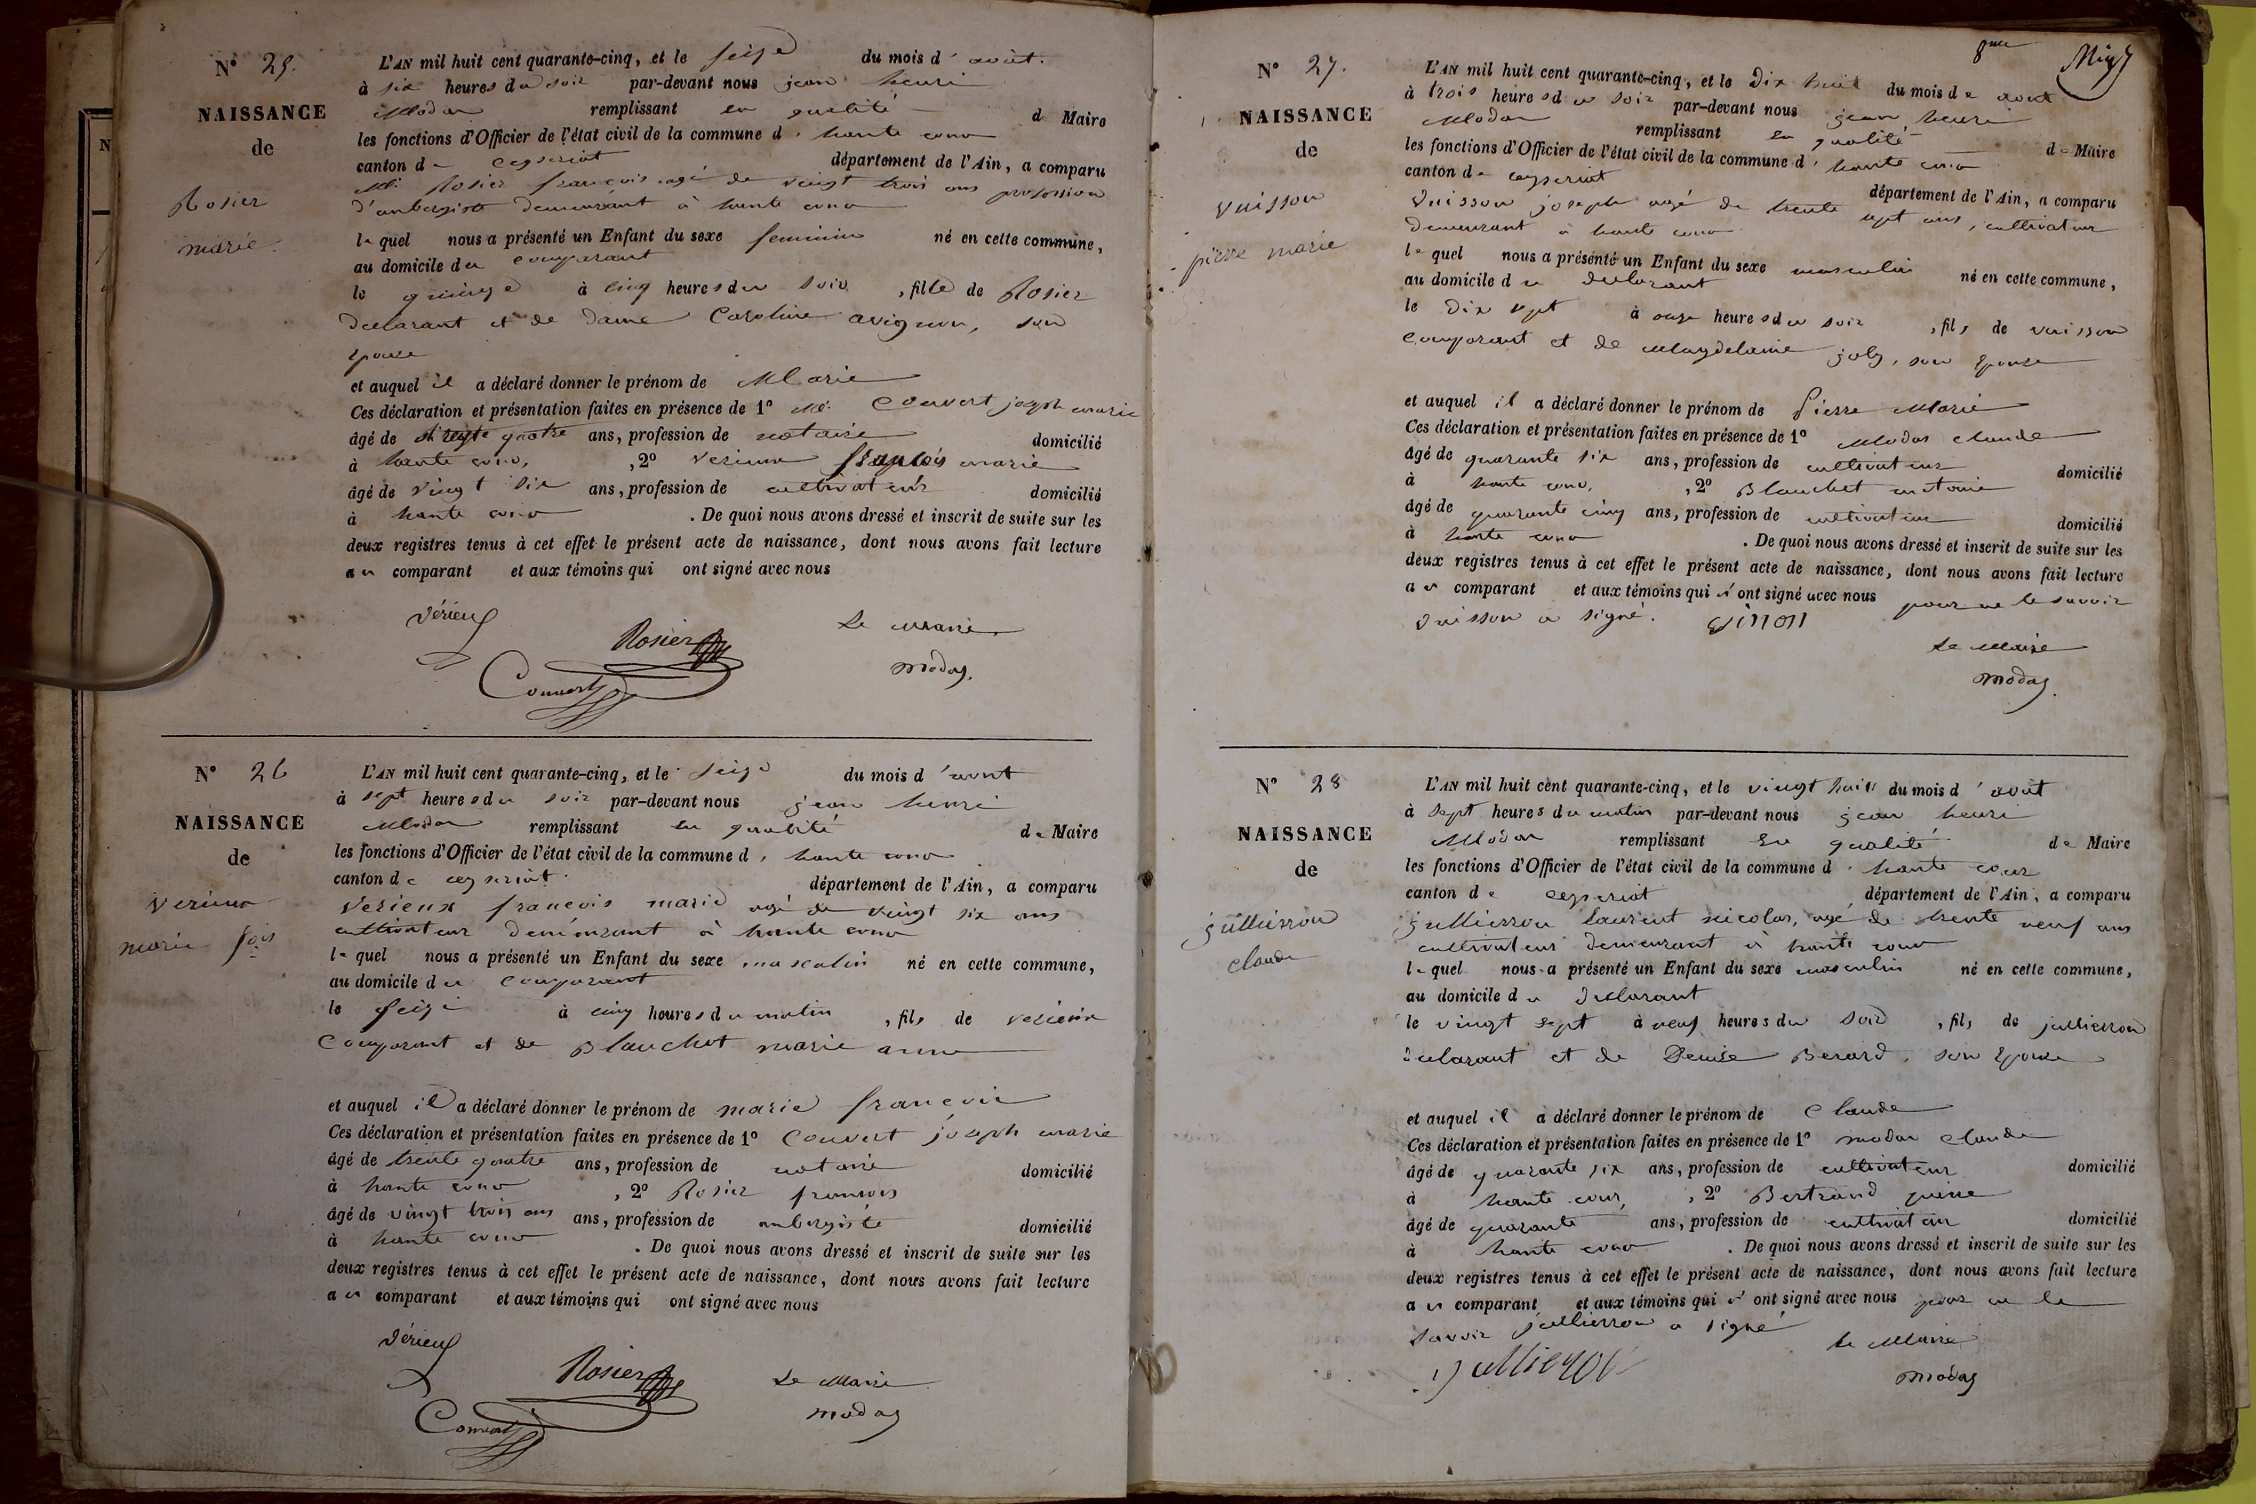 N° 25.
NAISSANCE
de
Rosier
marie.
L'AN mil huit cent quarante-cinq, et le seize du mois d' août.
à six heures du soir par-devant nous jean henri
Modas remplissant en qualité de Maire
les fonctions d'Officier de l'état civil de la commune d' haute cour
canton de ceyseriat département de l'Ain, a comparu
Mr. Rosier françois agé de vingt trois ans profession
d'aubergiste demeurant à haute cour
lequel nous a présenté un Enfant du sexe feminin né en cette commune,
au domicile du comparant
le quinze à cinq heures du soir, fille de Rosier
declarant et de dame Caroline avignon, son
epouse
et auquel il a déclaré donner le prénom de Marie
Ces déclaration et présentation faites en présence de 1° Mr. Convert joseph marie
âgé de trente quatre ans, profession de notaire domicilié
à haute cour, 2° verieux françois marie
âgé de vingt six ans, profession de cultivateur domicilié
à haute cour. De quoi nous avons dressé et inscrit de suite sur les
deux registres tenus à cet effet le présent acte de naissance, dont nous avons fait lecture
au comparant et aux témoins qui ont signé avec nous
Vérieux
Rosier
Le Maire
Convert
Modas.
N° 26
NAISSANCE
de
verieux
marie fois
L'AN mil huit cent quarante-cinq, et le seize du mois d'aout
à sept heures du soir par-devant nous jean henri
Modas remplissant en qualité de Maire
les fonctions d'Officier de l'état civil de la commune d' haute cour
canton de ceyseriat département de l'Ain, a comparu
Verieux françois marie agé de vingt six ans
cultivateur demeurant à haute cour
lequel nous a présenté un Enfant du sexe masculin né en cette commune,
au domicile du comparant
le seize à cinq heures du matin, fils de verieux
comparant et de Blanchet marie anne
et auquel il a déclaré donner le prénom de marie françois
Ces déclaration et présentation faites en présence de 1° Convert joseph marie
âgé de trente quatre ans, profession de notaire domicilié
à haute cour, 2° Rosier françois
âgé de vingt trois ans ans, profession de aubergiste domicilié
à haute cour. De quoi nous avons dressé et inscrit de suite sur les
deux registres tenus à cet effet le présent acte de naissance, dont nous avons fait lecture
au comparant et aux témoins qui ont signé avec nous
Vérieux
Rosier
Le Maire
Convert
Modas
8me
N° 27.
NAISSANCE
de
vuisson
pierre marie
L'AN mil huit cent quarante-cinq, et le Dix huit du mois de aout
à trois heures du soir par-devant nous jean henri
Modas remplissant en qualité de Maire
les fonctions d'Officier de l'état civil de la commune d' haute cour
canton de ceyseriat département de l'Ain, a comparu
Vuisson joseph agé de trente sept ans, cultivateur
demeurant à haute cour
lequel nous a présenté un Enfant du sexe masculin né en cette commune,
au domicile du declarant
le Dix sept à onze heures du soir, fils de vuisson
comparant et de Magdelaine joly, son epouse
et auquel il a déclaré donner le prénom de Pierre Marie
Ces déclaration et présentation faites en présence de 1° Modas claude
âgé de quarante six ans, profession de cultivateur domicilié
à haute cour, 2° Blanchet antoine
âgé de quarante cinq ans, profession de cultivateur domicilié
à haute cour. De quoi nous avons dressé et inscrit de suite sur les
deux registres tenus à cet effet le présent acte de naissance, dont nous avons fait lecture
au comparant et aux témoins qui n'ont signé avec nous pour ne le savoir
Vuisson a signé.
Le Maire
Modas.
N° 28
NAISSANCE
de
jullierron
claude
L'AN mil huit cent quarante-cinq, et le vingt huit du mois d' août
à sept heures du matin par-devant nous jean henri
Modas remplissant en qualité de Maire
les fonctions d'Officier de l'état civil de la commune d' haute cour
canton de ceyseriat département de l'Ain, a comparu
jullierron laurent nicolas, agé de trente neuf ans
cultivateur demeurant à haute cour
lequel nous a présenté un Enfant du sexe masculin né en cette commune,
au domicile du declarant
le vingt sept à neuf heures du soir, fils de jullierron
declarant et de Denise Berard, son epouse
et auquel il a déclaré donner le prénom de Claude
Ces déclaration et présentation faites en présence de 1° modas claude
âgé de quarante six ans, profession de cultivateur domicilié
à haute cour, 2° Bertrand pierre
âgé de quarante ans, profession de cultivateur domicilié
à haute cour. De quoi nous avons dressé et inscrit de suite sur les
deux registres tenus à cet effet le présent acte de naissance, dont nous avons fait lecture
au comparant et aux témoins qui n'ont signé avec nous pour ne le
savoir jullierron a signé
Le Maire
Modas